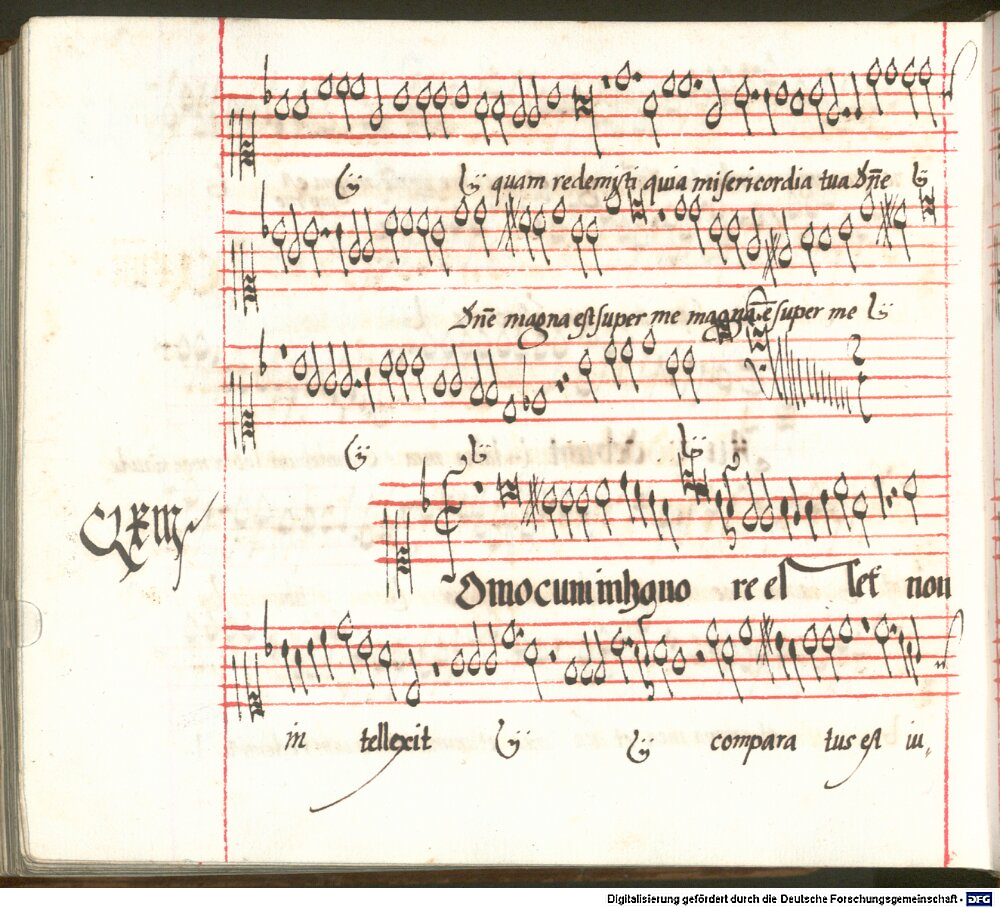 ij ij quam redemisti quia misericordia tua dñe ij
dñe magna est super me magna ē super me ij
ij ij ij
Omo cum in hono re es set non
in tellexit ij ij compara tus est iu,
Digitalisierung gefördert durch die Deutsche Forschungsgemeinschaft - DFG